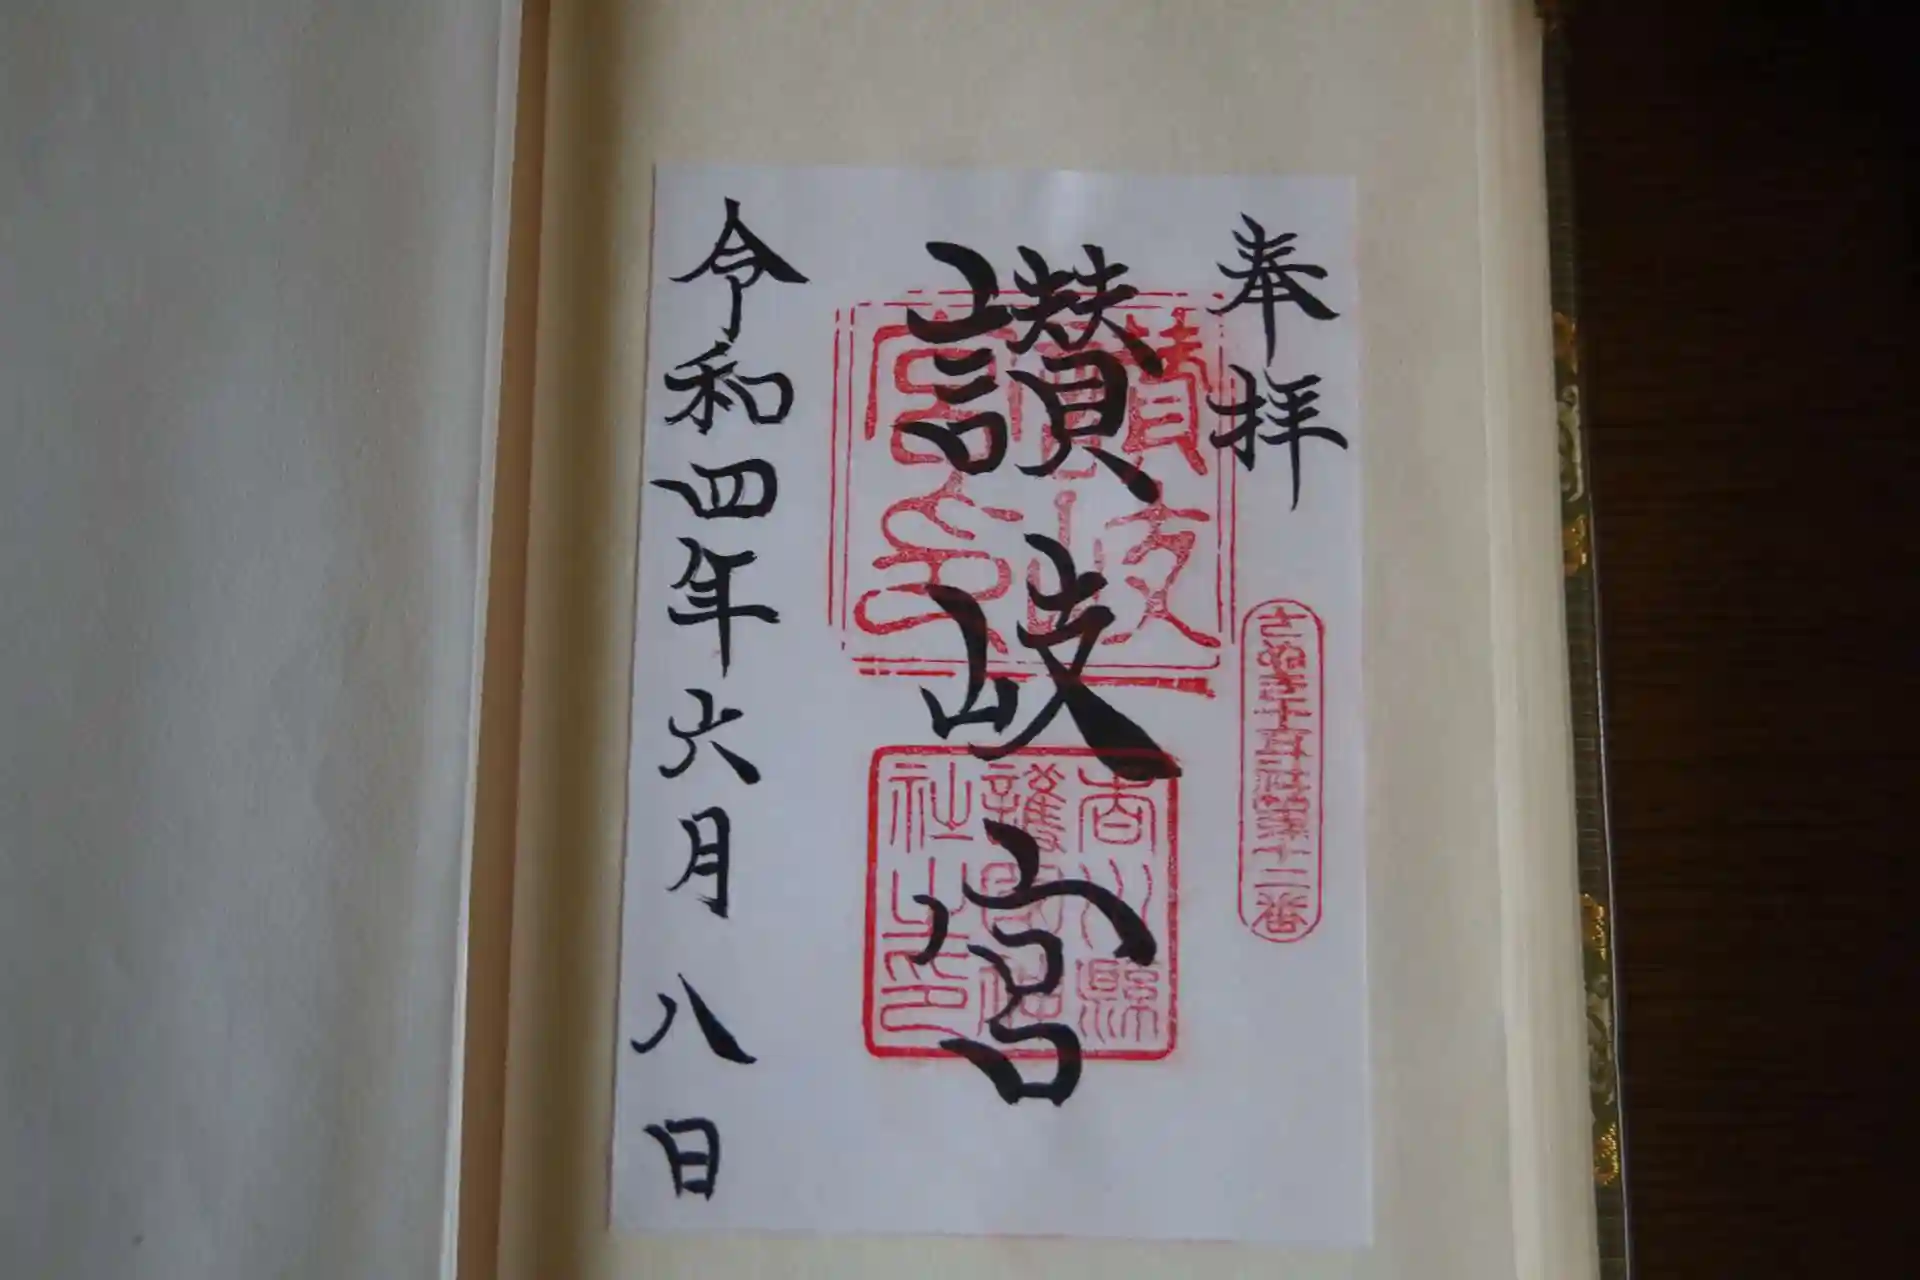 奉拝
讃岐宮
讃岐宮印
香川縣護國神社之印
さぬき十五社第十二番
令和四年六月八日